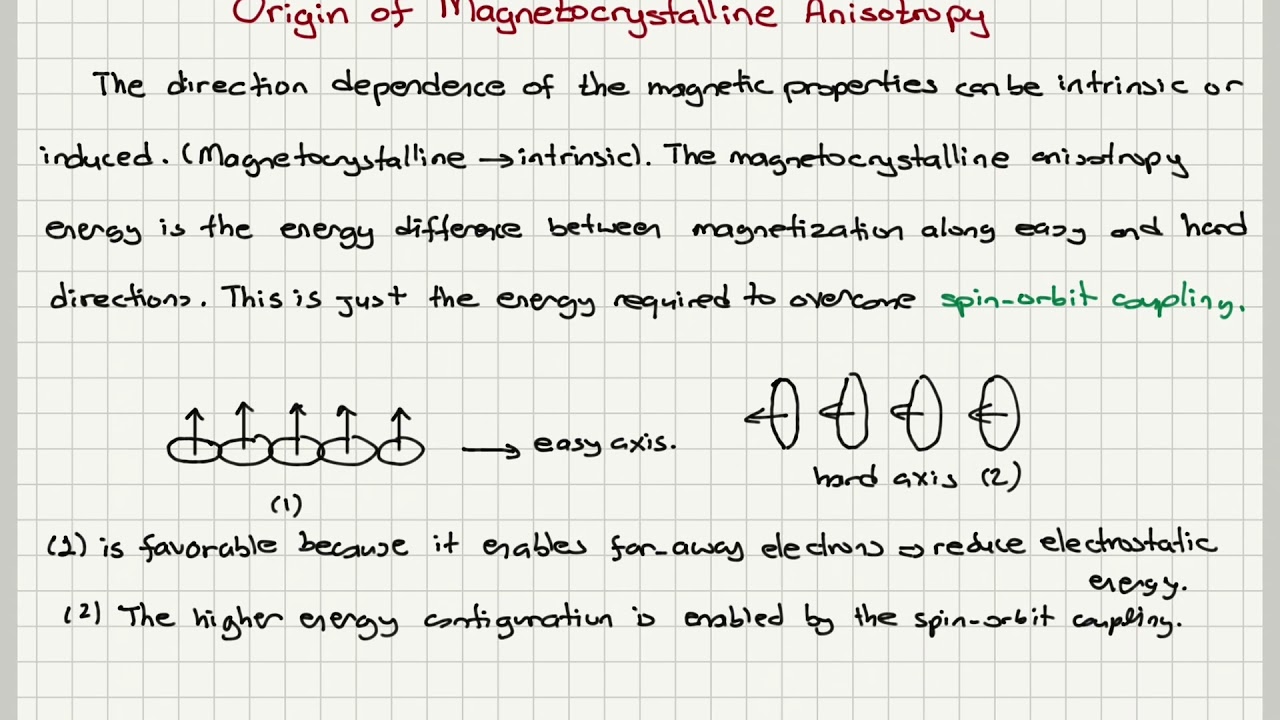 Origin of Magnetocrystalline Anisotropy
The direction dependence of the magnetic properties can be intrinsic or
induced. (Magnetocrystalline → intrinsic). The magnetocrystalline anisotropy
energy is the energy difference between magnetization along easy and hard
directions. This is just the energy required to overcome spin-orbit coupling.
→ easy axis.
hard axis (2)
(1)
(1) is favorable because it enables far-away electrons ⇒ reduce electrostatic
energy.
(2) The higher energy configuration is enabled by the spin-orbit coupling.